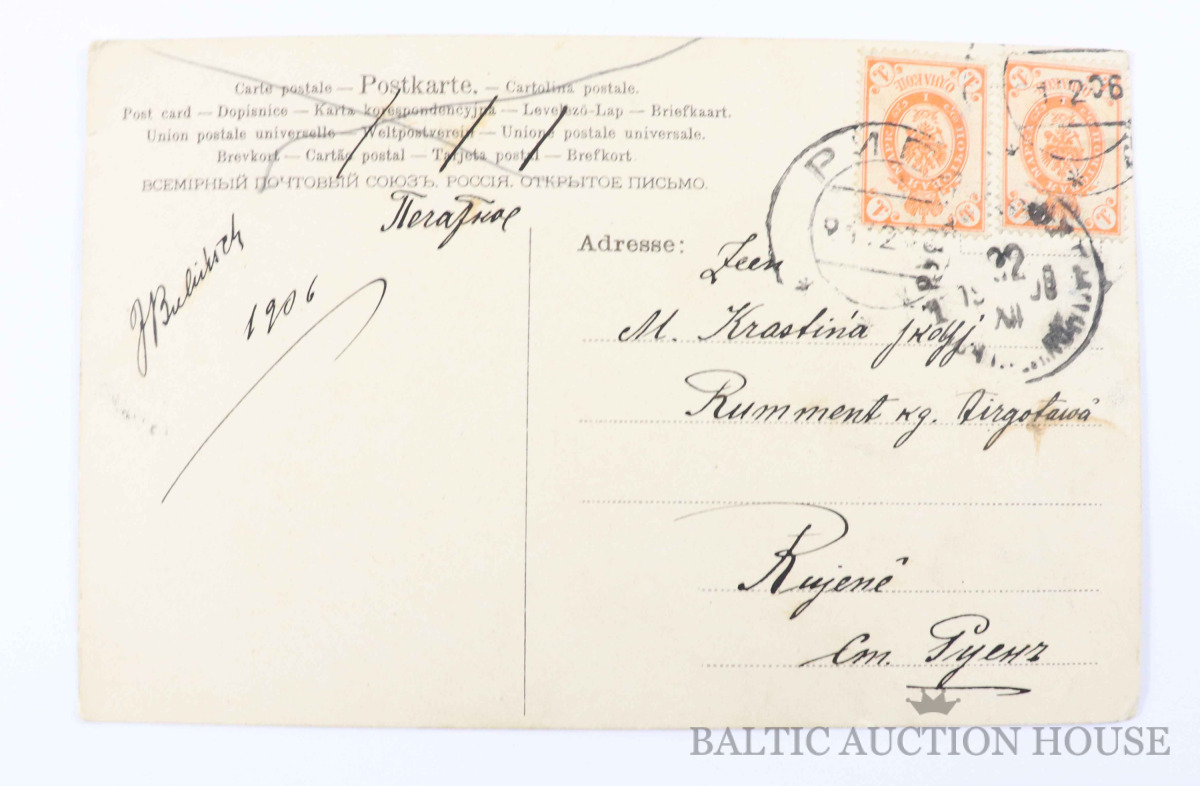 Carte postale — Postkarte. — Cartolina postale.
Post card — Dopisnice — Karta korespondencyjna — Levelező-Lap — Briefkaart.
Union postale universelle — Weltpostverein — Unione postale universale.
Brevkort — Cartão postal — Tarjeta postal — Brefkort
ВСЕМІРНЫЙ ПОЧТОВЫЙ СОЮЗЪ. РОССІЯ. ОТКРЫТОЕ ПИСЬМО.
Печатное
1906
Adresse:
M. Krastiņa
Rumment kg. tirgotawâ
Rujenê
Ст. Руенъ
РИГ
BALTIC AUCTION HOUSE